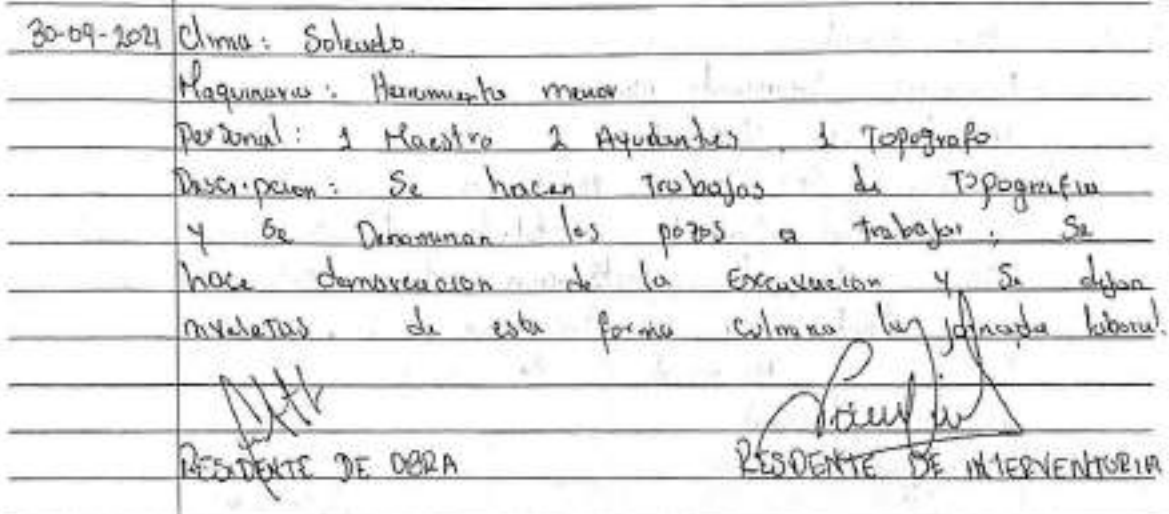 30-09-2021 Clima: Soleado.
Maquinaria: Herramienta menor
Personal: 1 Maestro 2 Ayudantes, 1 Topografo
Descripcion: Se hacen Trabajos de Topografia
y Se Denominan los pozos a trabajar, Se
hace demarcacion de la Excavacion y Se dejan
niveletas. de esta forma culmina la jornada laboral.
RESIDENTE DE OBRA RESIDENTE DE INTERVENTORIA